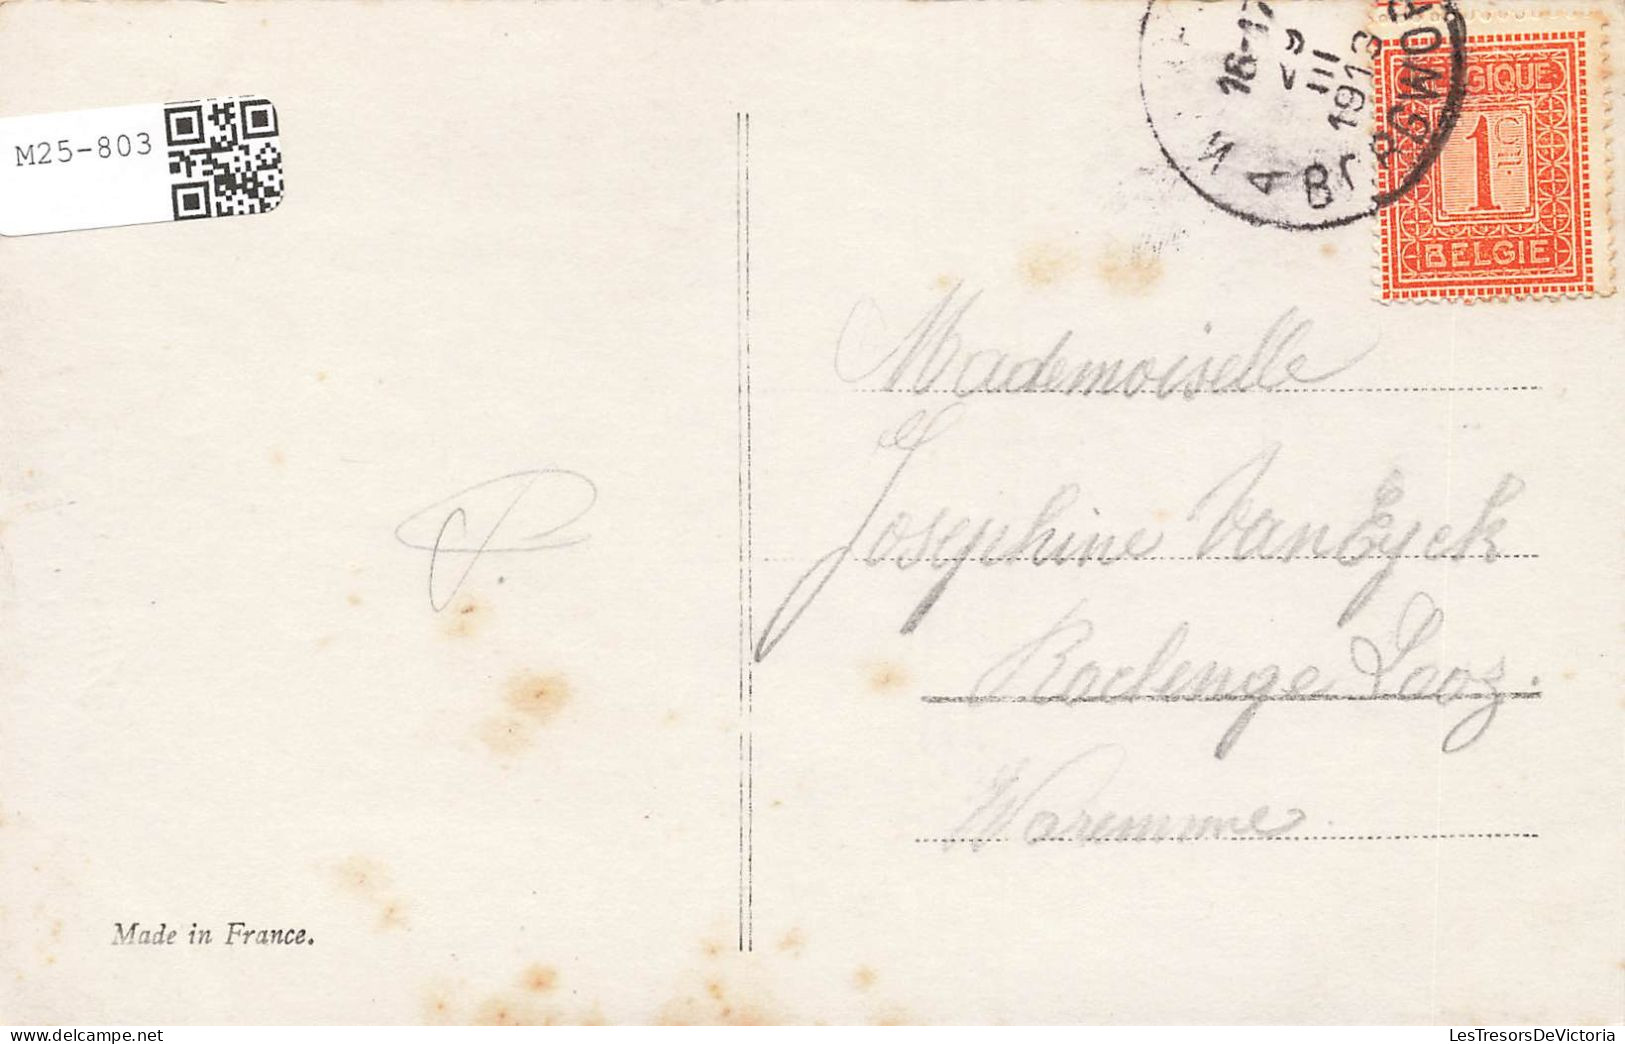 M25-803
16-17
III
1913
BORGWORM
BELGIQUE
1 Cent.
BELGIE
Mademoiselle
Josephine Van Eyck
Roclenge Looz.
Waremme
P.
Made in France.
LesTresorsDeVictoria